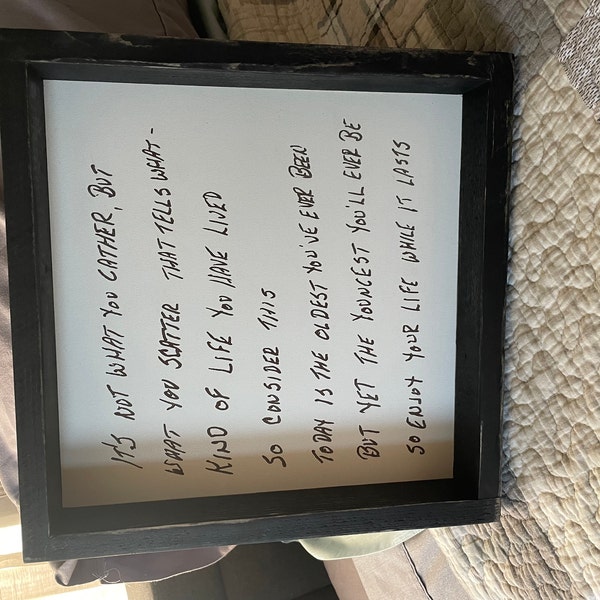 IT'S NOT WHAT YOU GATHER, BUT
WHAT YOU SCATTER THAT TELLS WHAT-
KIND OF LIFE YOU HAVE LIVED
SO CONSIDER THIS
TODAY IS THE OLDEST YOU'VE EVER BEEN
BUT YET THE YOUNGEST YOU'LL EVER BE
SO ENJOY YOUR LIFE WHILE IT LASTS